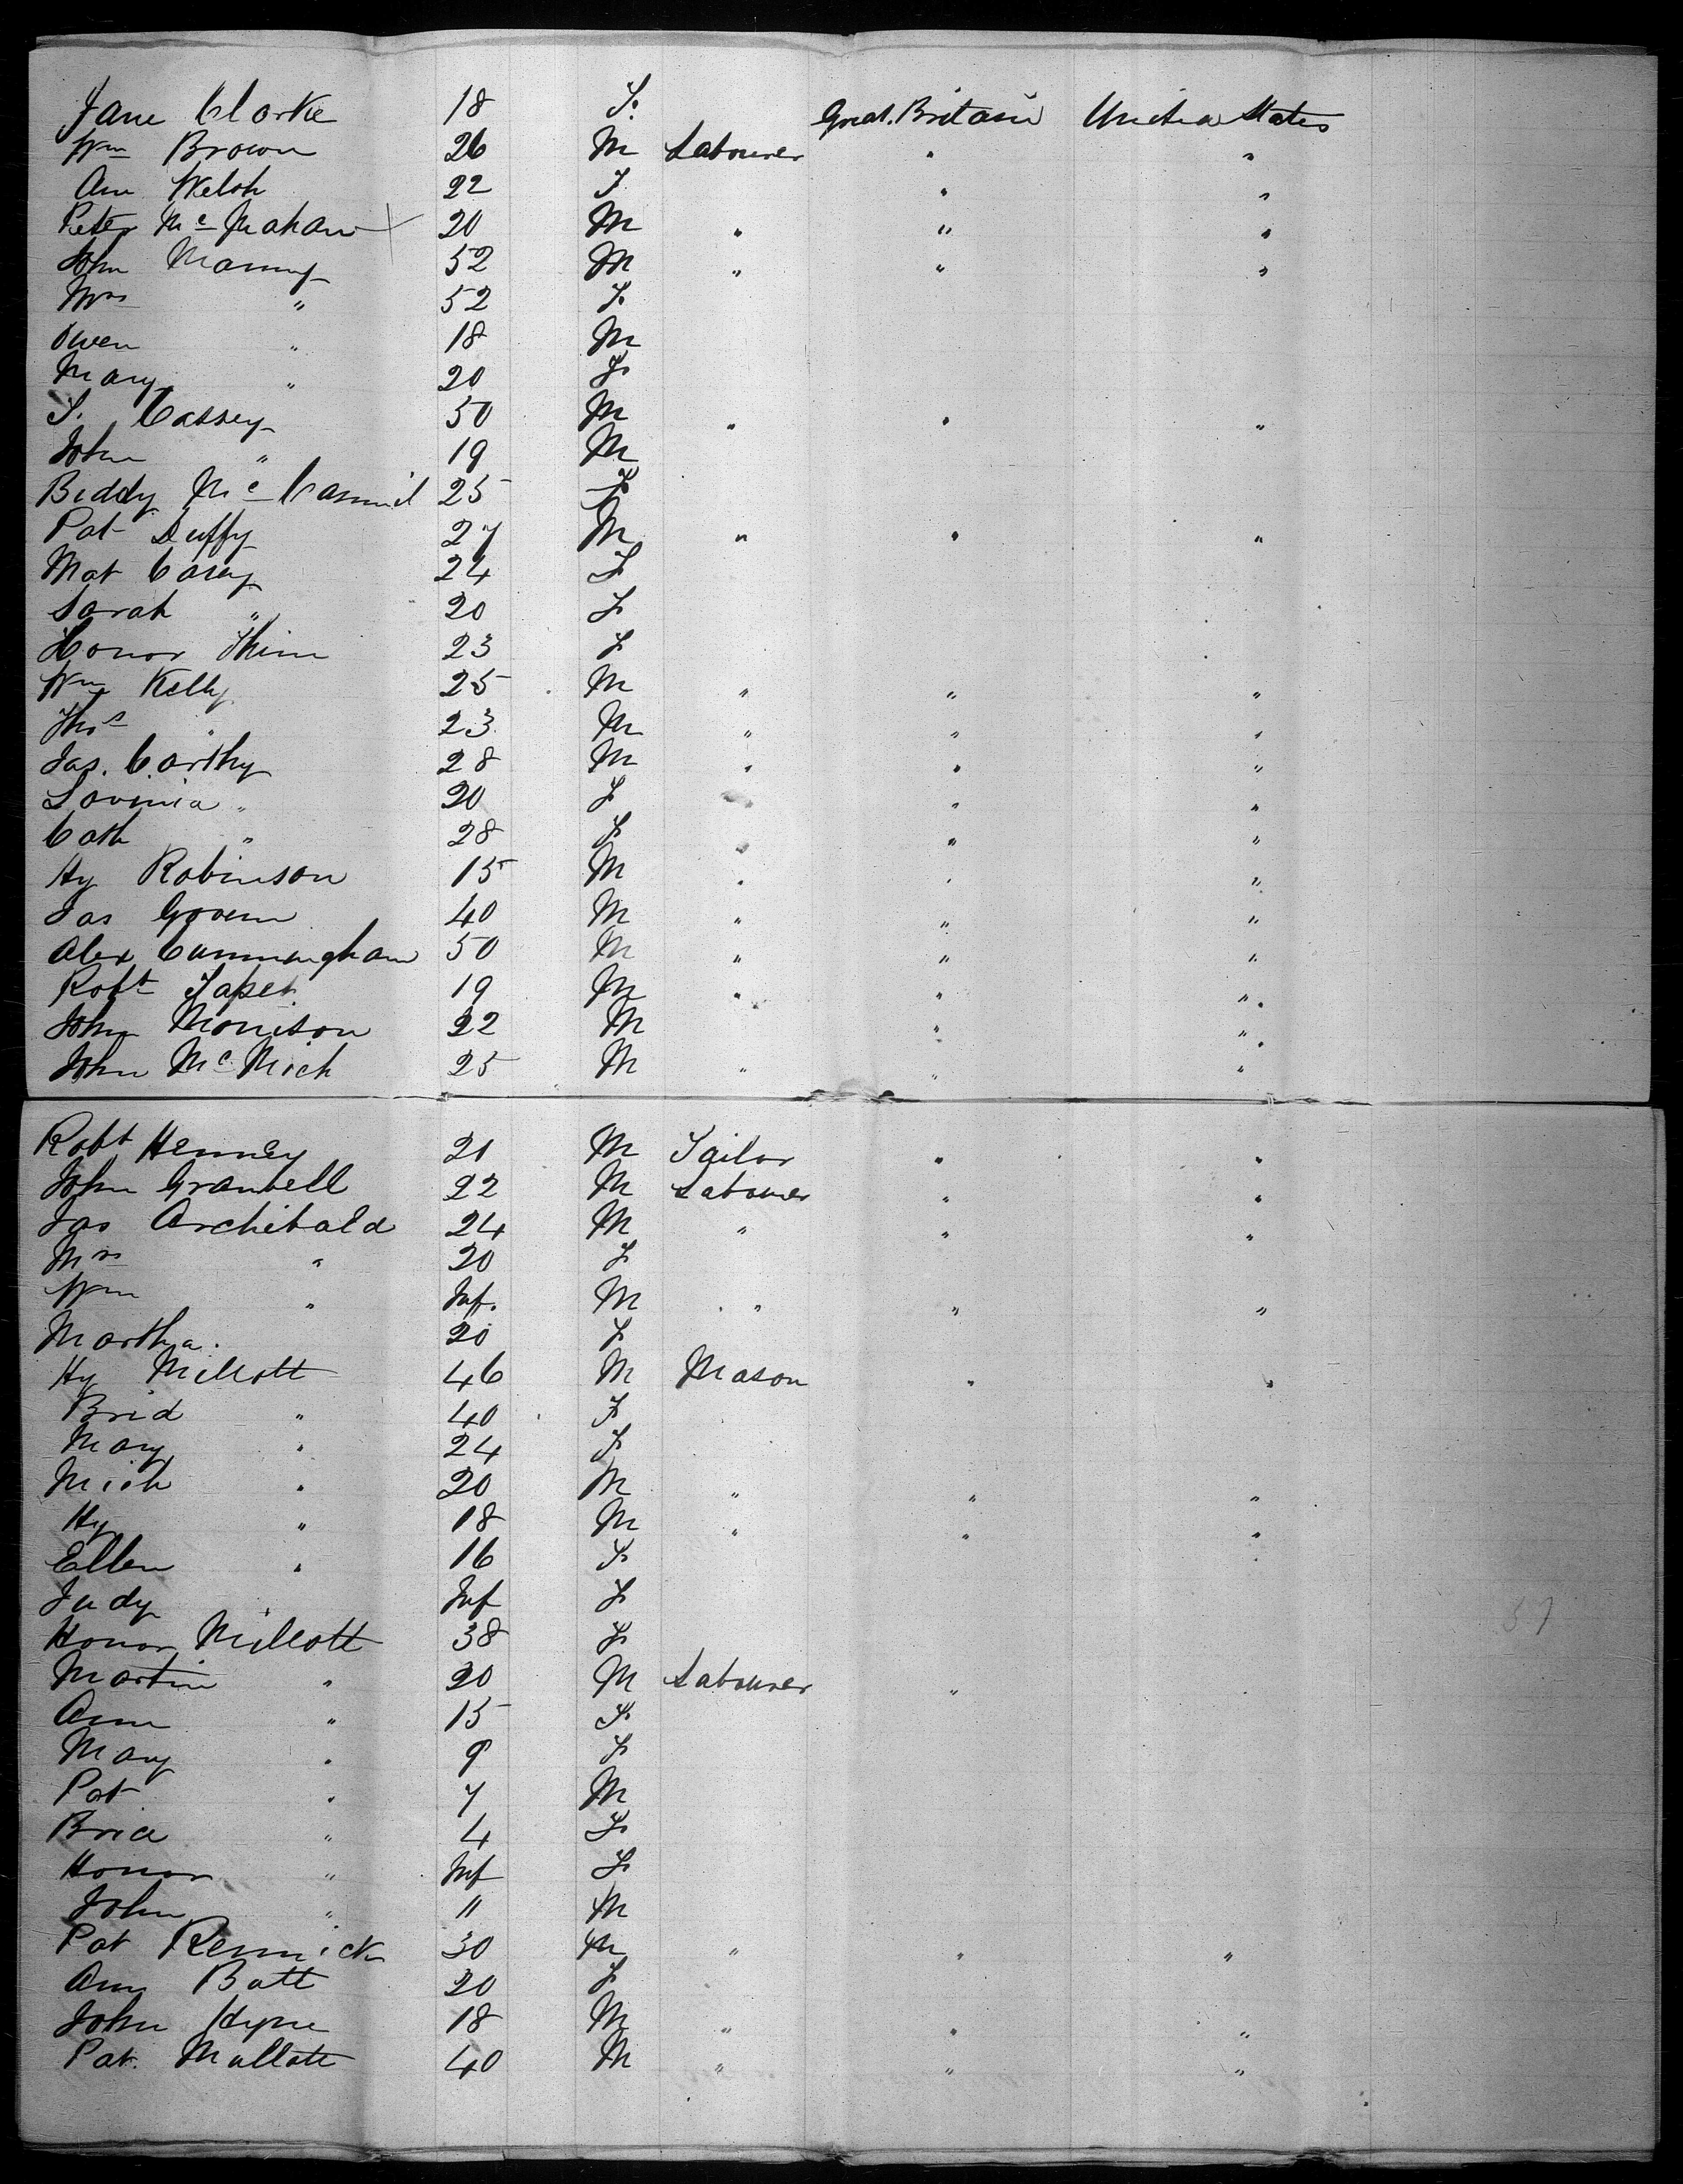 Jane Clarke 18 F. Great. Britain United States
Wm Brown 26 M Labourer " "
Ann Welsh 22 F " "
Peter Mc Mahan 20 M " " "
John Manny 52 M " " "
Mrs " 52 F.
Owen " 18 M
Mary " 20 F
Cassey 50 M " " "
John " 19 M
Biddy Mc 25 F
Pat Duffy 27 M " " "
Mat Casey 24 F
Sarah " 20 F
Honor 23 F
Wm Kelly 25 M " " "
Thos " 23 M " " "
Jas. Carthy 28 M " " "
Lovinia " 20 F " " "
Cath " 28 F " " "
Hy Robinson 15 M " " "
Jas Govern 40 M " " "
Alex Cunningham 50 M " " "
Robt 19 M " " "
John Morrison 22 M " "
John Mc Mich 25 M " " "
Robt Henney 21 M Tailor " "
John 22 M Labourer " "
Jas Archibald 24 M " " "
Mrs " 20 F
Wm " Inf. M " " "
Martha. 20 F
Hy Millott 46 M Mason " "
Brid " 40 F
Mary " 24 F
Mich " 20 M " " "
Hy " 18 M " " "
Ellen " 16 F
Judy " Inf F
Honor Millott 38 F
Martin " 20 M Labourer "
Ann " 15 F
Mary " 9 F
Pat " 7 M
Brid " 4 F
Honor " Inf F
John " 11 M
Pat Rennick 30 M " " "
Ann Batt 20 F
John Hyne 18 M " " "
Pat. Mallott 40 M " " "
57